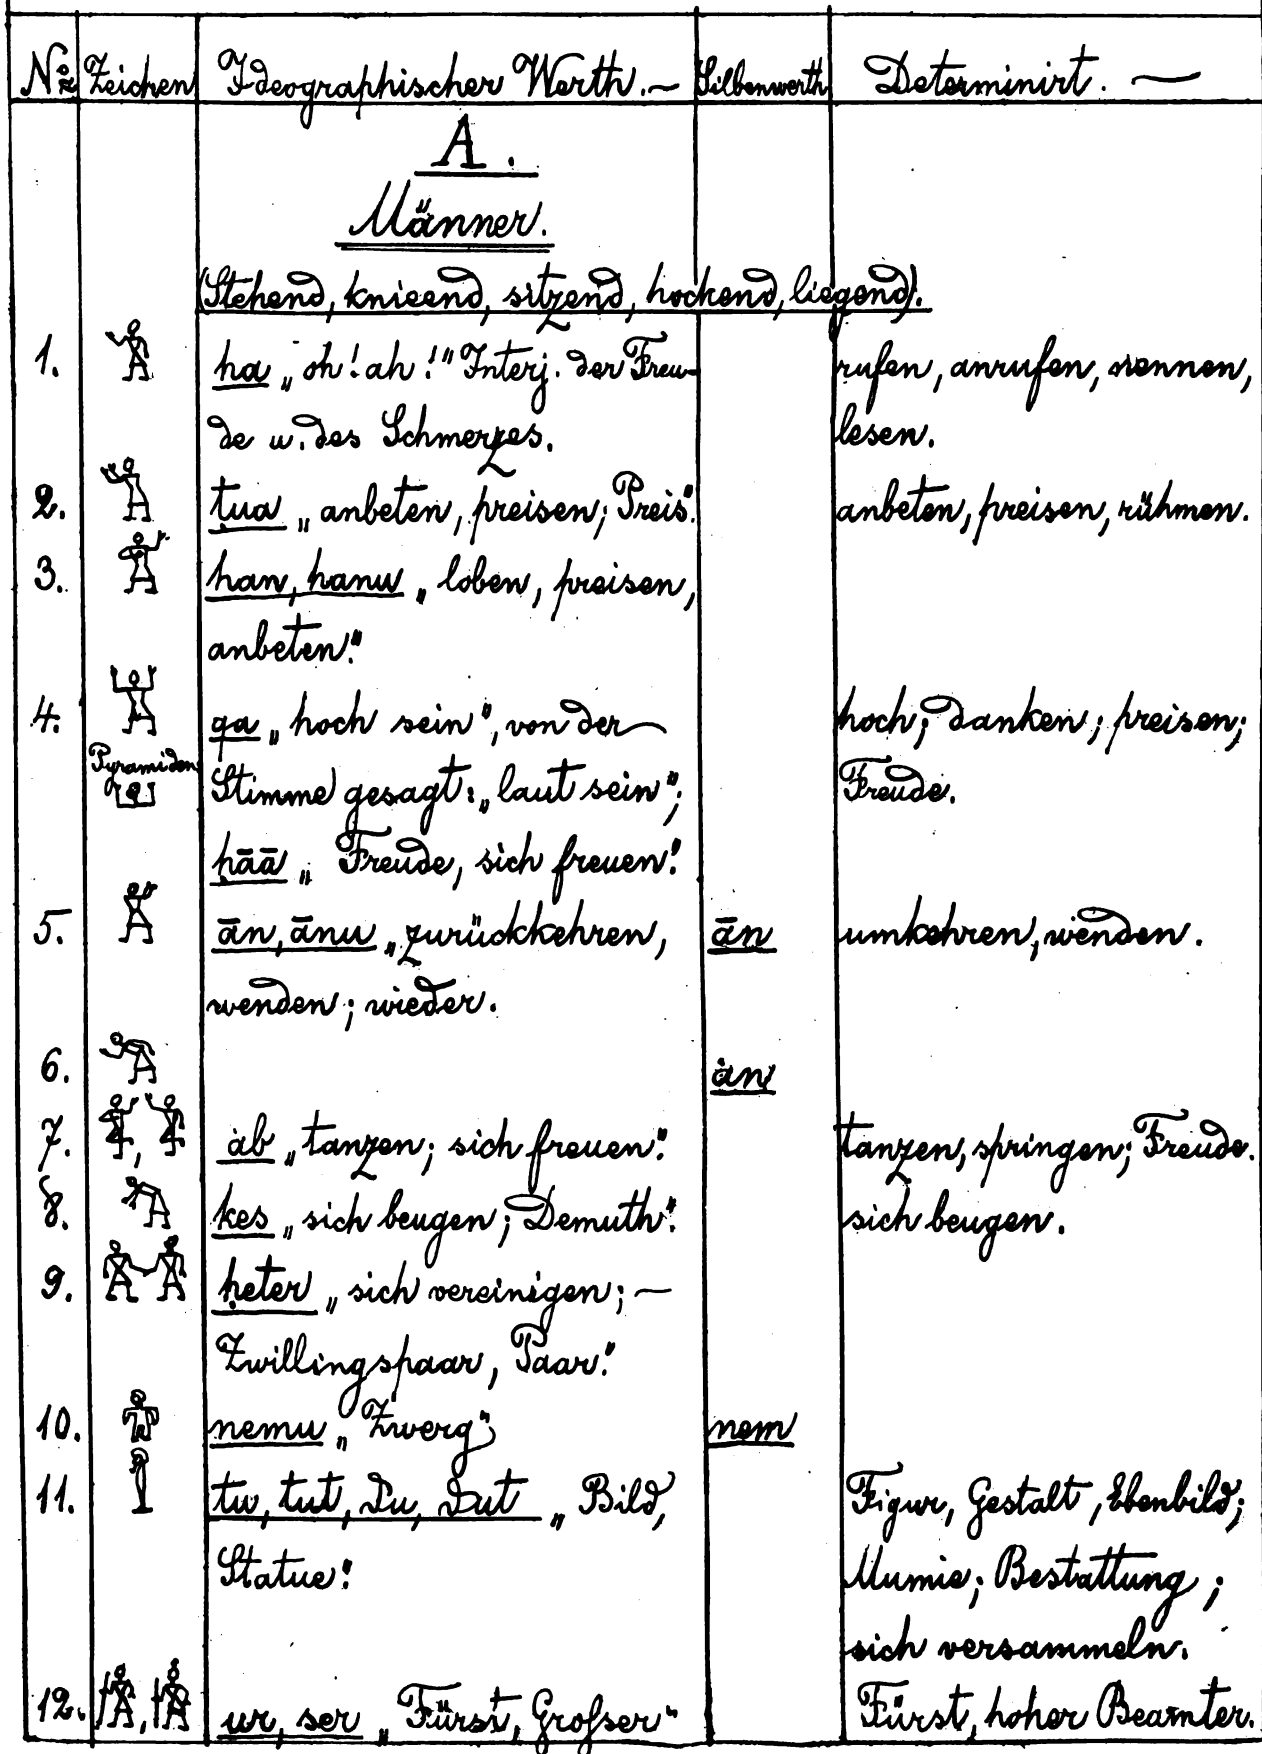 No. Zeichen Ideographischer Werth.— Silbenwerth Determinirt. —
A.
Männer.
(Stehend, knieend, sitzend, hockend, liegend).
1. ha „oh! ah!" Interj. der Freu- rufen, anrufen, nennen,
de u. des Schmerzes. lesen.
2. ṭua „anbeten, preisen; Preis". anbeten, preisen, rühmen.
3. han, hanu „loben, preisen,
anbeten".
4. qa „hoch sein", von der hoch; danken; preisen;
Pyramiden Stimme gesagt: „laut sein"; Freude.
ḥāā „Freude, sich freuen".
5. ān, ānu „zurückkehren, ān umkehren, wenden.
wenden; wieder.
6. ȧn
7. ȧb „tanzen; sich freuen". tanzen, springen; Freude.
8. kes „sich beugen; Demuth". sich beugen.
9. ḥeter „sich vereinigen; —
Zwillingspaar, Paar".
10. nemu „Zwerg" nem
11. tu, tut, du, dut „Bild, Figur, Gestalt, Ebenbild;
Statue". Mumie; Bestattung;
sich versammeln.
12. ur, ser „Fürst, Großer" Fürst, hoher Beamter.